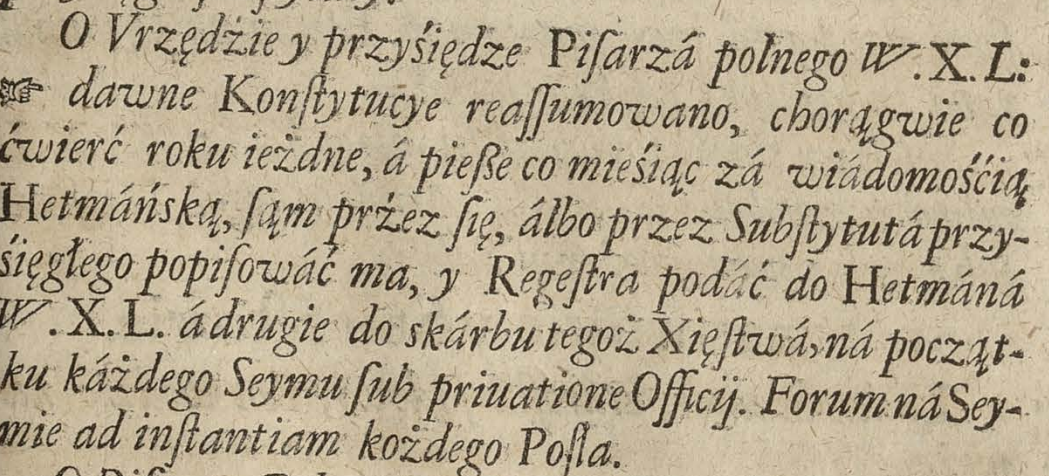 O Vrzędźie y przyśiędze Piſarzá polnego W. X. L:
☞ dawne Konſtytucye reaſſumowano, chorągwie co
ćwierć roku ieżdne, á pieſze co mieśiąc zá wiádomośćią
Hetmáńską, ſąm przez ſię, álbo przez Subſtytutá przy-
śięgłego popiſowáć ma, y Regeſtra podáć do Hetmáná
W. X. L. á drugie do skárbu tegoż Xięſtwá, ná począt-
ku káżdego Seymu ſub priuatione Officij. Forum ná Sey-
mie ad inſtantiam kożdego Poſła.